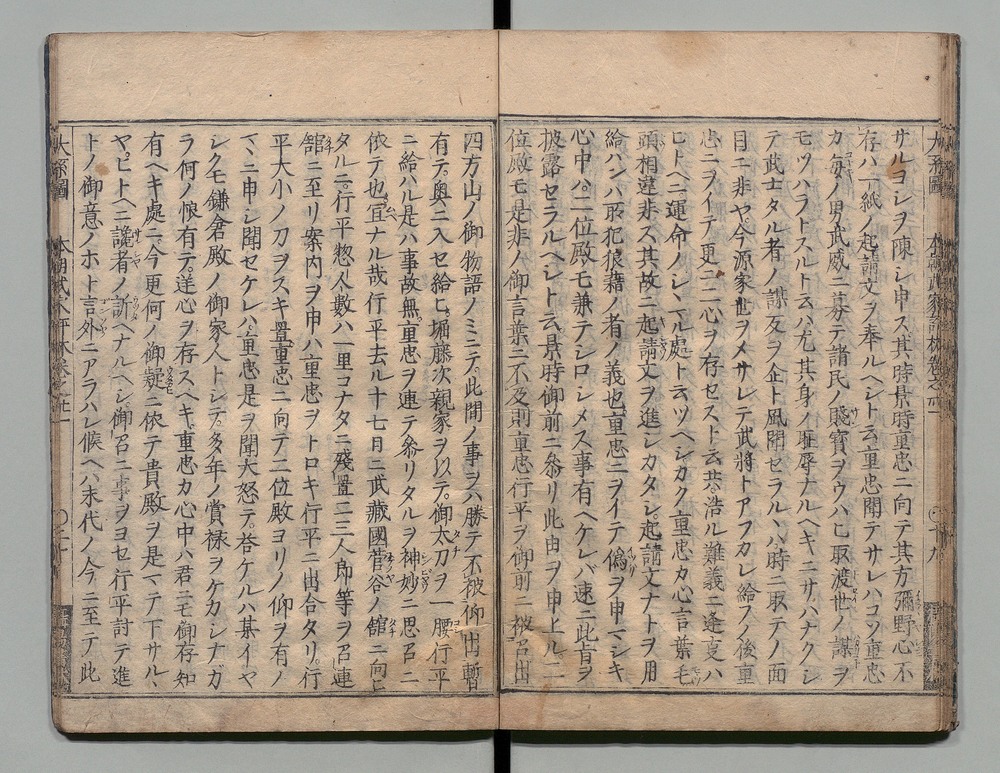 サルヨシヲ陳シ申ス其時景時重忠ニ向テ其方彌野心不
存ハ一紙ノ起請文ヲ奉ルヘシト云重忠聞テサレハコソ重忠
カ毎ノ男武威ニ募テ諸民ノ賤寳ヲウハヒ取渡世ノ謀ヲ
モツハラトスルト云ハ尤其身ノ耻辱ナルヘキニサハナクシ
テ武士タル者ノ謀反ヲ企ト風聞セラルヽハ時ニ取テノ面
目ニ非ヤ今源家世ヲメサレテ武將トアフカレ給フノ後重
忠ニヲイテ更ニ二心ヲ存セスト云共浩ル難義ニ逢支ハ
ヒトヘニ運命ノシヽマル處ト云ツヘシカク重忠カ心言葉毛
頭相違非ス其故ニ起請文ヲ進シカタシ起請文ナトヲ用
給ハンハ取犯狼藉ノ者ノ義也重忠ニヲイテ偽ヲ申マシキ
心中ハ二位殿モ兼テシロシメス事有ヘケレバ速ニ此旨ヲ
披露セラルヘシト云景時御前ニ參リ此由ヲ申上ル二
位殿モ是非ノ御言葉ニ不及則重忠行平ヲ御前ニ被召出
四方山ノ御物語ノミニテ此間ノ事ヲハ勝テ不被仰出暫
有テ奥ニ入セ給ヒ堀藤次親家ヲ以テ御太刀ヲ一腰行平
ニ給ハル是ハ事故無重忠ヲ連テ參リタルヲ神妙ニ思召ニ
依テ也宜ナル哉行平去ル十七月ニ武藏國菅谷ノ館ニ向ヒ
タルニ行平惣人數ハ一里コナタニ殘置二三人郎等ヲ召連
舘ニ至リ案内ヲ申ハ重忠ヲトロキ行平ニ出合タリ行
平大小ノ刀ヲスキ置重忠ニ向テ二位殿ヨリノ仰ヲ有ノ
マヽニ申シ聞セケレハ重忠是ヲ聞大怒テ答ケルハ某イヤ
シクモ鎌倉殿ノ御家人トシテ多年ノ賞禄ヲケカシナガ
ラ何ノ恨有テ逆心ヲ存スヘキ重忠カ心中ハ君ニモ御存知
有ヘキ處ニ今更何ノ御疑ニ依テ貴殿ヲ是マテ下サルヽ
ヤヒトヘニ讒者ノ訴ヘナルヘシ御召ニ事ヲヨセ行平討テ進
トノ御意ノホト言外ニアラハレ候ヘハ末代ノ今ニ至テ此